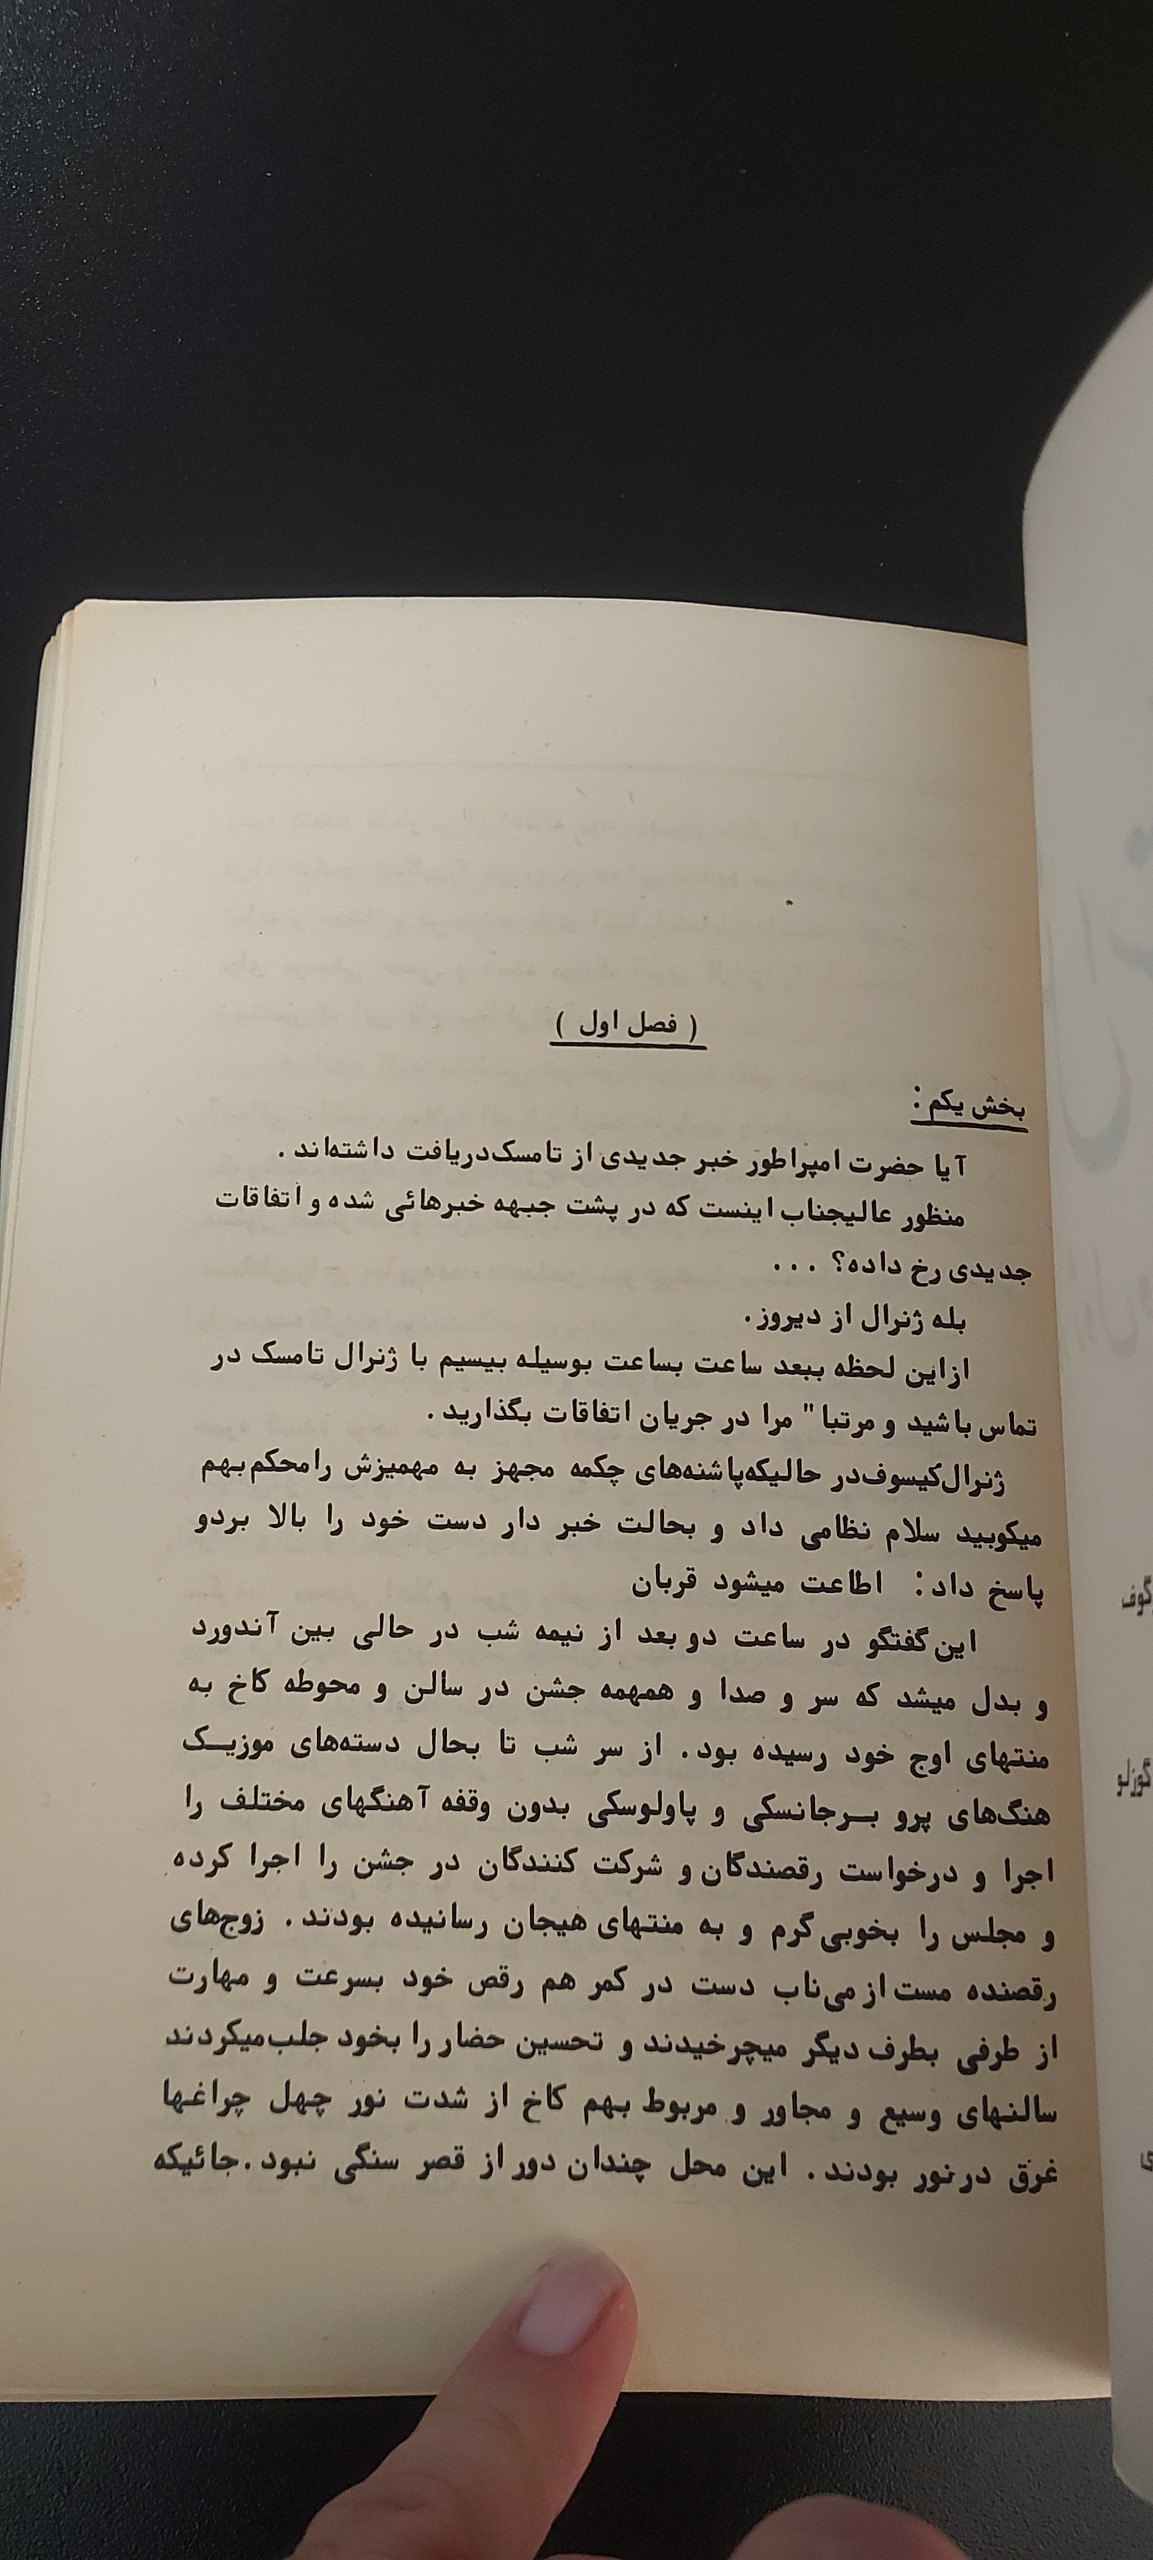 ( فصل اول )
بخش یکم :
آیا حضرت امپراطور خبر جدیدی از تامسک‌دریافت داشته‌اند .
منظور عالیجناب اینست که در پشت جبهه خبرهائی شده و اتفاقات
جدیدی رخ داده؟ ...
بله ژنرال از دیروز.
ازاین لحظه ببعد ساعت بساعت بوسیله بیسیم با ژنرال تامسک در
تماس باشید و مرتبا" مرا در جریان اتفاقات بگذارید .
ژنرال‌کیسوف‌در حالیکه‌پاشنه‌های چکمه مجهز به مهمیزش رامحکم‌بهم
میکوبید سلام نظامی داد و بحالت خبر دار دست خود را بالا بردو
پاسخ داد : اطاعت میشود قربان
این گفتگو در ساعت دو بعد از نیمه شب در حالی بین آندورد
و بدل میشد که سر و صدا و همهمه جشن در سالن و محوطه کاخ به
منتهای اوج خود رسیده بود . از سر شب تا بحال دسته‌های موزیـک
هنگ‌های پرو بـرجانسکی و پاولوسکی بدون وقفه آهنگهای مختلف را
اجرا و درخواست رقصندگان و شرکت کنندگان در جشن را اجرا کرده
و مجلس را بخوبی گرم و به منتهای هیجان رسانیده بودند . زوج‌های
رقصنده مست از می‌ناب دست در کمر هم رقص خود بسرعت و مهارت
از طرفی بطرف دیگر میچرخیدند و تحسین حضار را بخود جلب‌میکردند
سالنهای وسیع و مجاور و مربوط بهم کاخ از شدت نور چهل چراغها
غرق درنور بودند . این محل چندان دور از قصر سنگی نبود .جائیکه